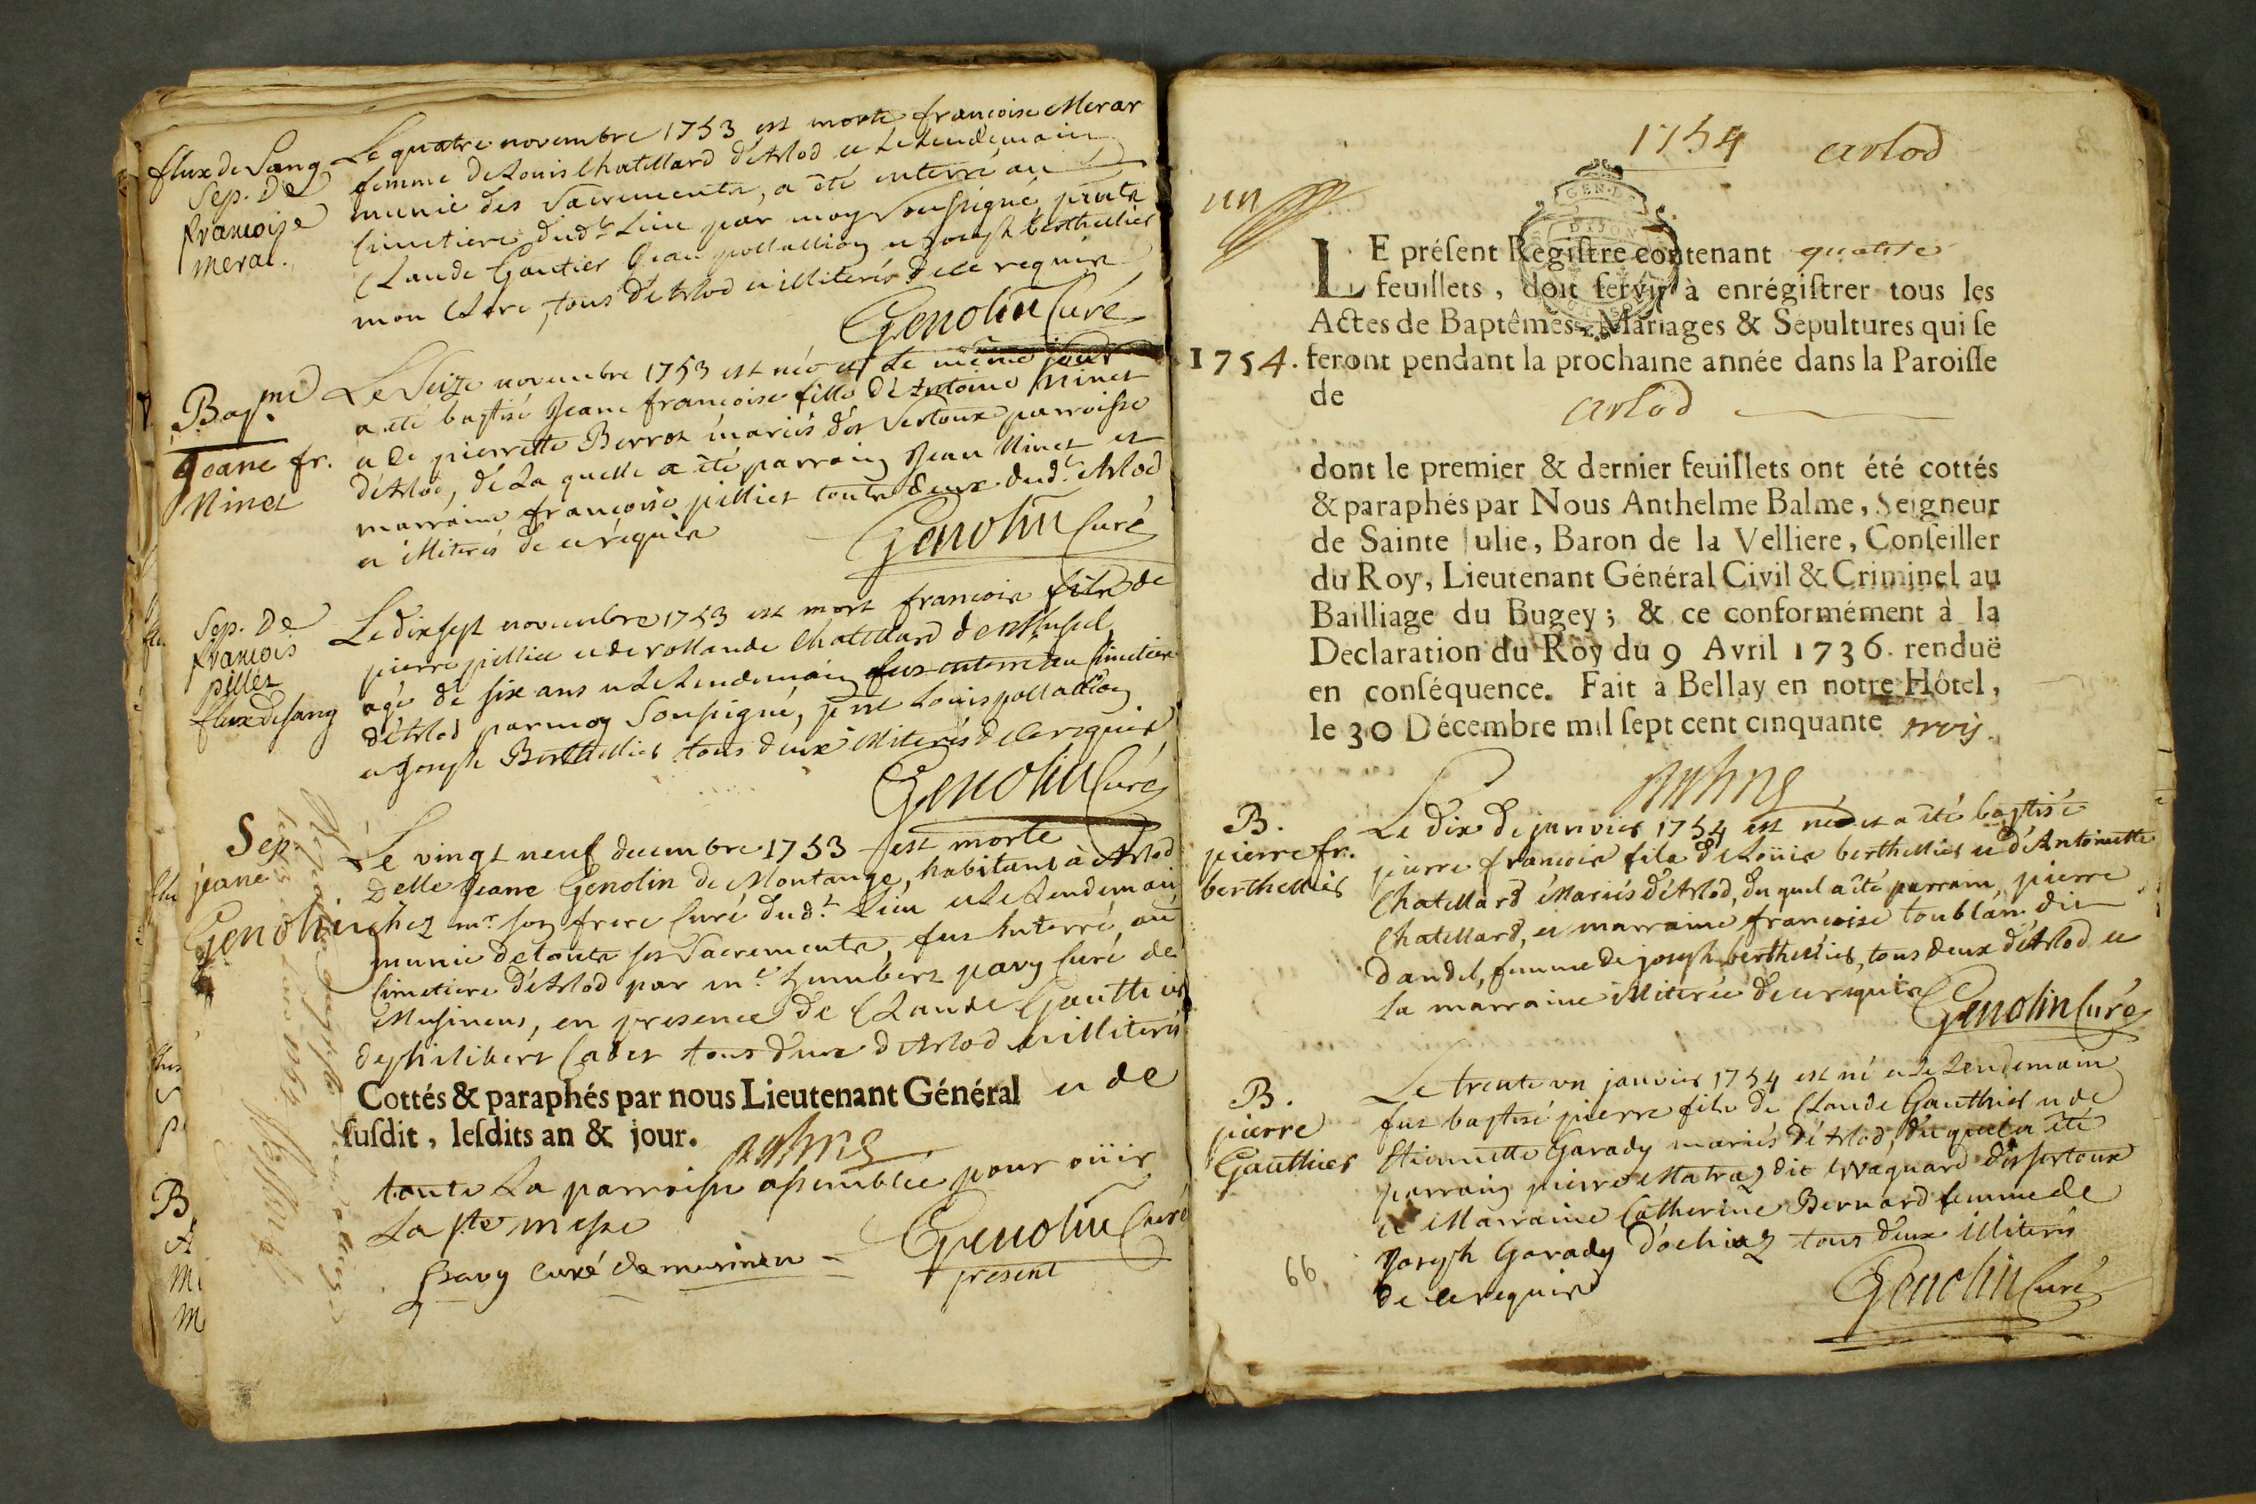 flux de Sang
Sep. De
francoise
meral.
Le quatre novembre 1753 est morte francoise Merar
femme de Louis Chatellard d'Arlod et le Lendemain
munie des Sacrements, a été enterré au
Cimetiere dud.t Lieu par moy Soussigné, pnts
Claude Gautier Jean pollallion et Joseph berthellier
mon Clerc, tous d'Arlod et illiterés de ce requis
Genolin Curé
Bap.me
Jeane fr.
Ninet
Le Seize novembre 1753 est née et le même jour
a été baptisé Jeane francoise fille d'Antoine Ninet
et de pierrette Berrot mariés des Sertoux parroisse
d'Arlod, de La quelle a été parrain Jean Ninet et
marraine francoise pilliet touts deux dud.t Arlod
et illiterés de ce requis
Genolin Curé
Sep. De
francois
pillet
flux de sang
Le dix sept novembre 1753 est mort francois fils de
pierre pilliet et de rollande Chatellard de
agé de six ans et le Lendemain fut enterré au Cimetiere
d'Arlod par moy Soussigné, pnt Louis pollallion
et Joseph Berthellier tous deux illiterés de ce requis
Genolin Curé
Sep.
jeane
Genolin
Le vingt neuf decembre 1753 est morte
Delle Jeane Genolin de Montange, habitant à Arlod
chez mr. son frere Curé dud.t Lieu et le Lendemain
munie de touts ses Sacrements, fut Enterré, au
Cimetiere d'Arlod par mr. humbert pavy Curé de
Musinens, en presence de Claude Gauthier
de philibert Cadet tous deux d'Arlod et illiterés
Cottés & paraphés par nous Lieutenant Général et de
susdit, lesdits an & jour.
toute La parroisse assemblée pour oüir
La ste messe
Genolin Curé
present
pavy curé de musinen
1754 arlod
un
GEN. D
DIJON
LE présent Registre contenant quatre
feuillets, doit servir à enrégistrer tous les
Actes de Baptêmes, Mariages & Sepultures qui se
1754. feront pendant la prochaine année dans la Paroisse
de arlod
dont le premier & dernier feuillets ont été cottés
& paraphés par Nous Anthelme Balme, Seigneur
de Sainte Julie, Baron de la Velliere, Conseiller
du Roy, Lieutenant Général Civil & Criminel au
Bailliage du Bugey; & ce conformément à la
Declaration du Roy du 9 Avril 1736. renduë
en conséquence. Fait à Bellay en notre Hôtel,
le 30 Décembre mil sept cent cinquante trois.
B.
pierre fr.
berthellier
Le dix de janvier 1754 est né et a été baptisé
pierre francois fils de Loüis berthellier et d'Antoinette
Chatellard Mariés d'Arlod, du quel a été parrain, pierre
Chatellard, et marraine francoise toublan dit
dandel, femme de joseph berthellier, tous deux d'Arlod et
La marraine illiterée de ce requise
Genolin Curé
B.
pierre
Gauthier
Le trente un janvier 1754 est né et le Lendemain
fut baptisé pierre fils de Claude Gauthier et de
Etiennette Garady mariés d'Arlod, du quel a été
parrain pierre Matraz dit Waguard des sertoux
et Marraine Catherine Bernard femme de
Joseph Garady d'ochiaz tous deux illiterés
de ce requis
Genolin Curé
66